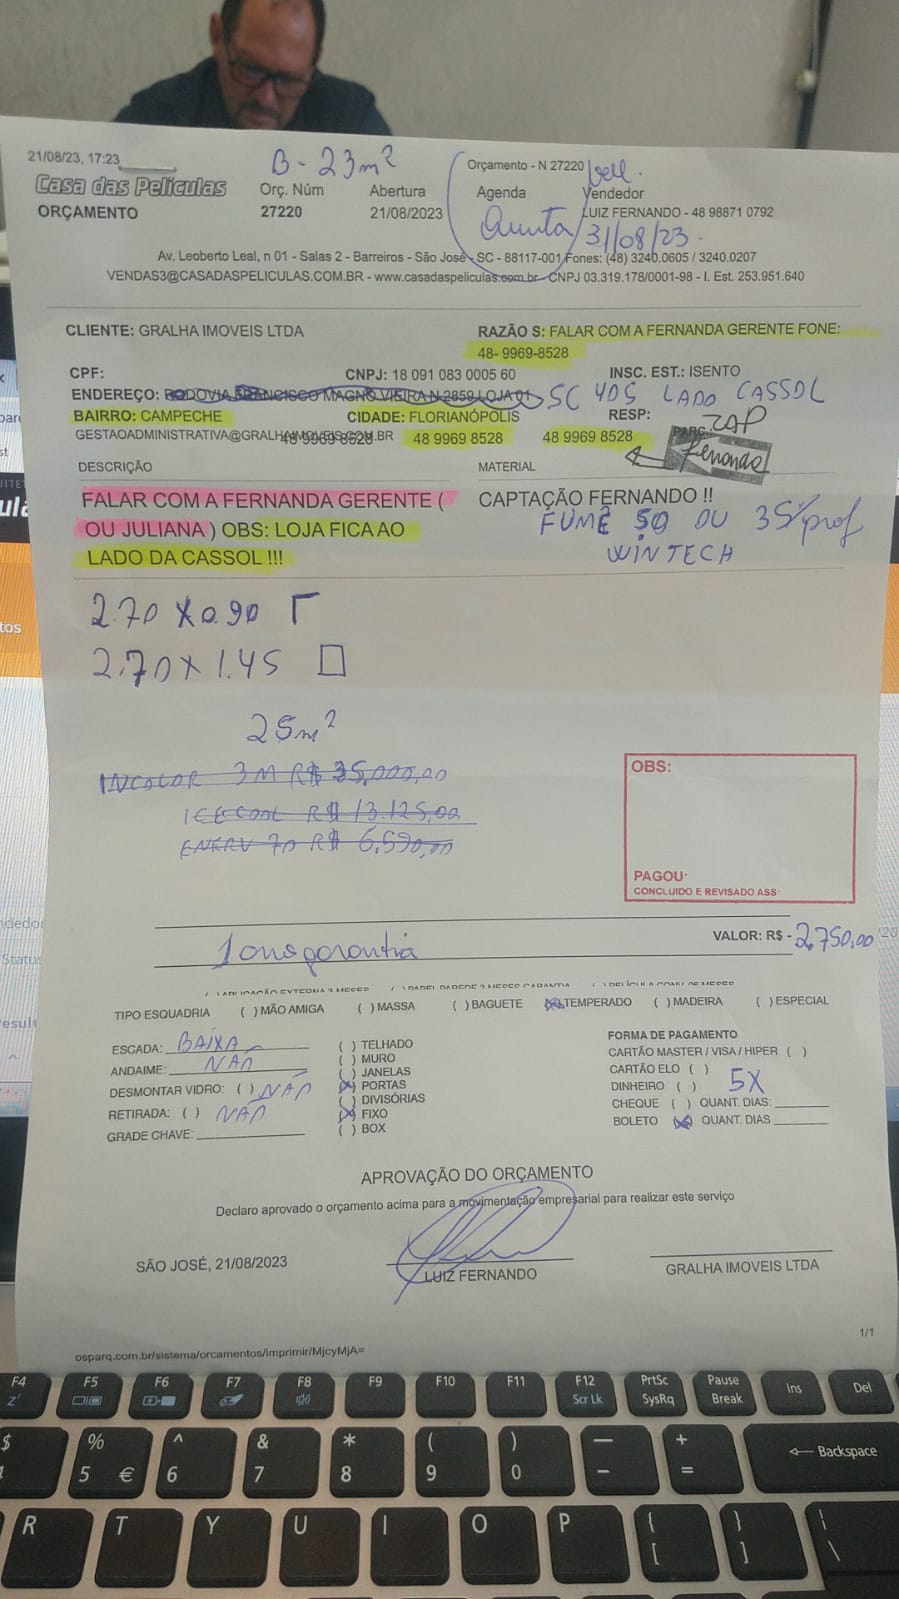 21/08/23, 17:23
B - 23m²
Orçamento - N 27220
Casa das Películas
Orç. Núm
Abertura
Agenda
Vendedor
ORÇAMENTO
27220
21/08/2023
Quinta 31/08/23.
LUIZ FERNANDO - 48 98871 0792
Av. Leoberto Leal, n 01 - Salas 2 - Barreiros - São José - SC - 88117-001 Fones: (48) 3240.0605 / 3240.0207
VENDAS3@CASADASPELICULAS.COM.BR - www.casadaspeliculas.com.br - CNPJ 03.319.178/0001-98 - I. Est. 253.951.640
CLIENTE: GRALHA IMOVEIS LTDA
RAZÃO S: FALAR COM A FERNANDA GERENTE FONE:
48- 9969-8528
CPF:
CNPJ: 18 091 083 0005 60
INSC. EST.: ISENTO
ENDEREÇO: RODOVIA FRANCISCO MAGNO VIEIRA N 2859 LOJA 01
SC 405 LADO CASSOL
BAIRRO: CAMPECHE
CIDADE: FLORIANÓPOLIS
RESP:
ZAP
GESTAOADMINISTRATIVA@GRALHAIMOVEIS.COM.BR
48 9969 8528
48 9969 8528
48 9969 8528
PARC.
Fernanda
DESCRIÇÃO
MATERIAL
FALAR COM A FERNANDA GERENTE (
OU JULIANA ) OBS: LOJA FICA AO
LADO DA CASSOL !!!
CAPTAÇÃO FERNANDO !!
FUMÊ 50 OU 35/prof
WINTECH
2.70 X 0.90
2.70 X 1.45
25m²
INCOLOR 3M R$ 35,000,00
ICECOOL R$ 13.125,00
ENERV 70 R$ 6.590,00
OBS:
PAGOU:
CONCLUIDO E REVISADO ASS:
VALOR: R$ - 2,750,00
1 ano garantia
( ) APLICAÇÃO EXTERNA 3 MESES ( ) PAPEL PAREDE 3 MESES GARANTIA
TIPO ESQUADRIA ( ) MÃO AMIGA ( ) MASSA ( ) BAGUETE (X) TEMPERADO ( ) MADEIRA ( ) ESPECIAL
ESCADA: BAIXA
ANDAIME: NÃO
DESMONTAR VIDRO: ( ) NÃO
RETIRADA: ( ) NÃO
GRADE CHAVE:
( ) TELHADO
( ) MURO
( ) JANELAS
(X) PORTAS
( ) DIVISÓRIAS
(X) FIXO
( ) BOX
FORMA DE PAGAMENTO
CARTÃO MASTER / VISA / HIPER ( )
CARTÃO ELO ( )
DINHEIRO ( ) 5X
CHEQUE ( ) QUANT. DIAS:
BOLETO (X) QUANT. DIAS
APROVAÇÃO DO ORÇAMENTO
Declaro aprovado o orçamento acima para a movimentação empresarial para realizar este serviço
SÃO JOSÉ, 21/08/2023
LUIZ FERNANDO
GRALHA IMOVEIS LTDA
1/1
osparq.com.br/sistema/orcamentos/imprimir/MjcyMjA=
F4 F5 F6 F7 F8 F9 F10 F11 F12 Scr Lk PrtSc SysRq Pause Break Ins Del
$ % 5 € ^ 6 & 7 * 8 ( 9 ) 0 — - + = Backspace
R T Y U I O P { [ } ] | \